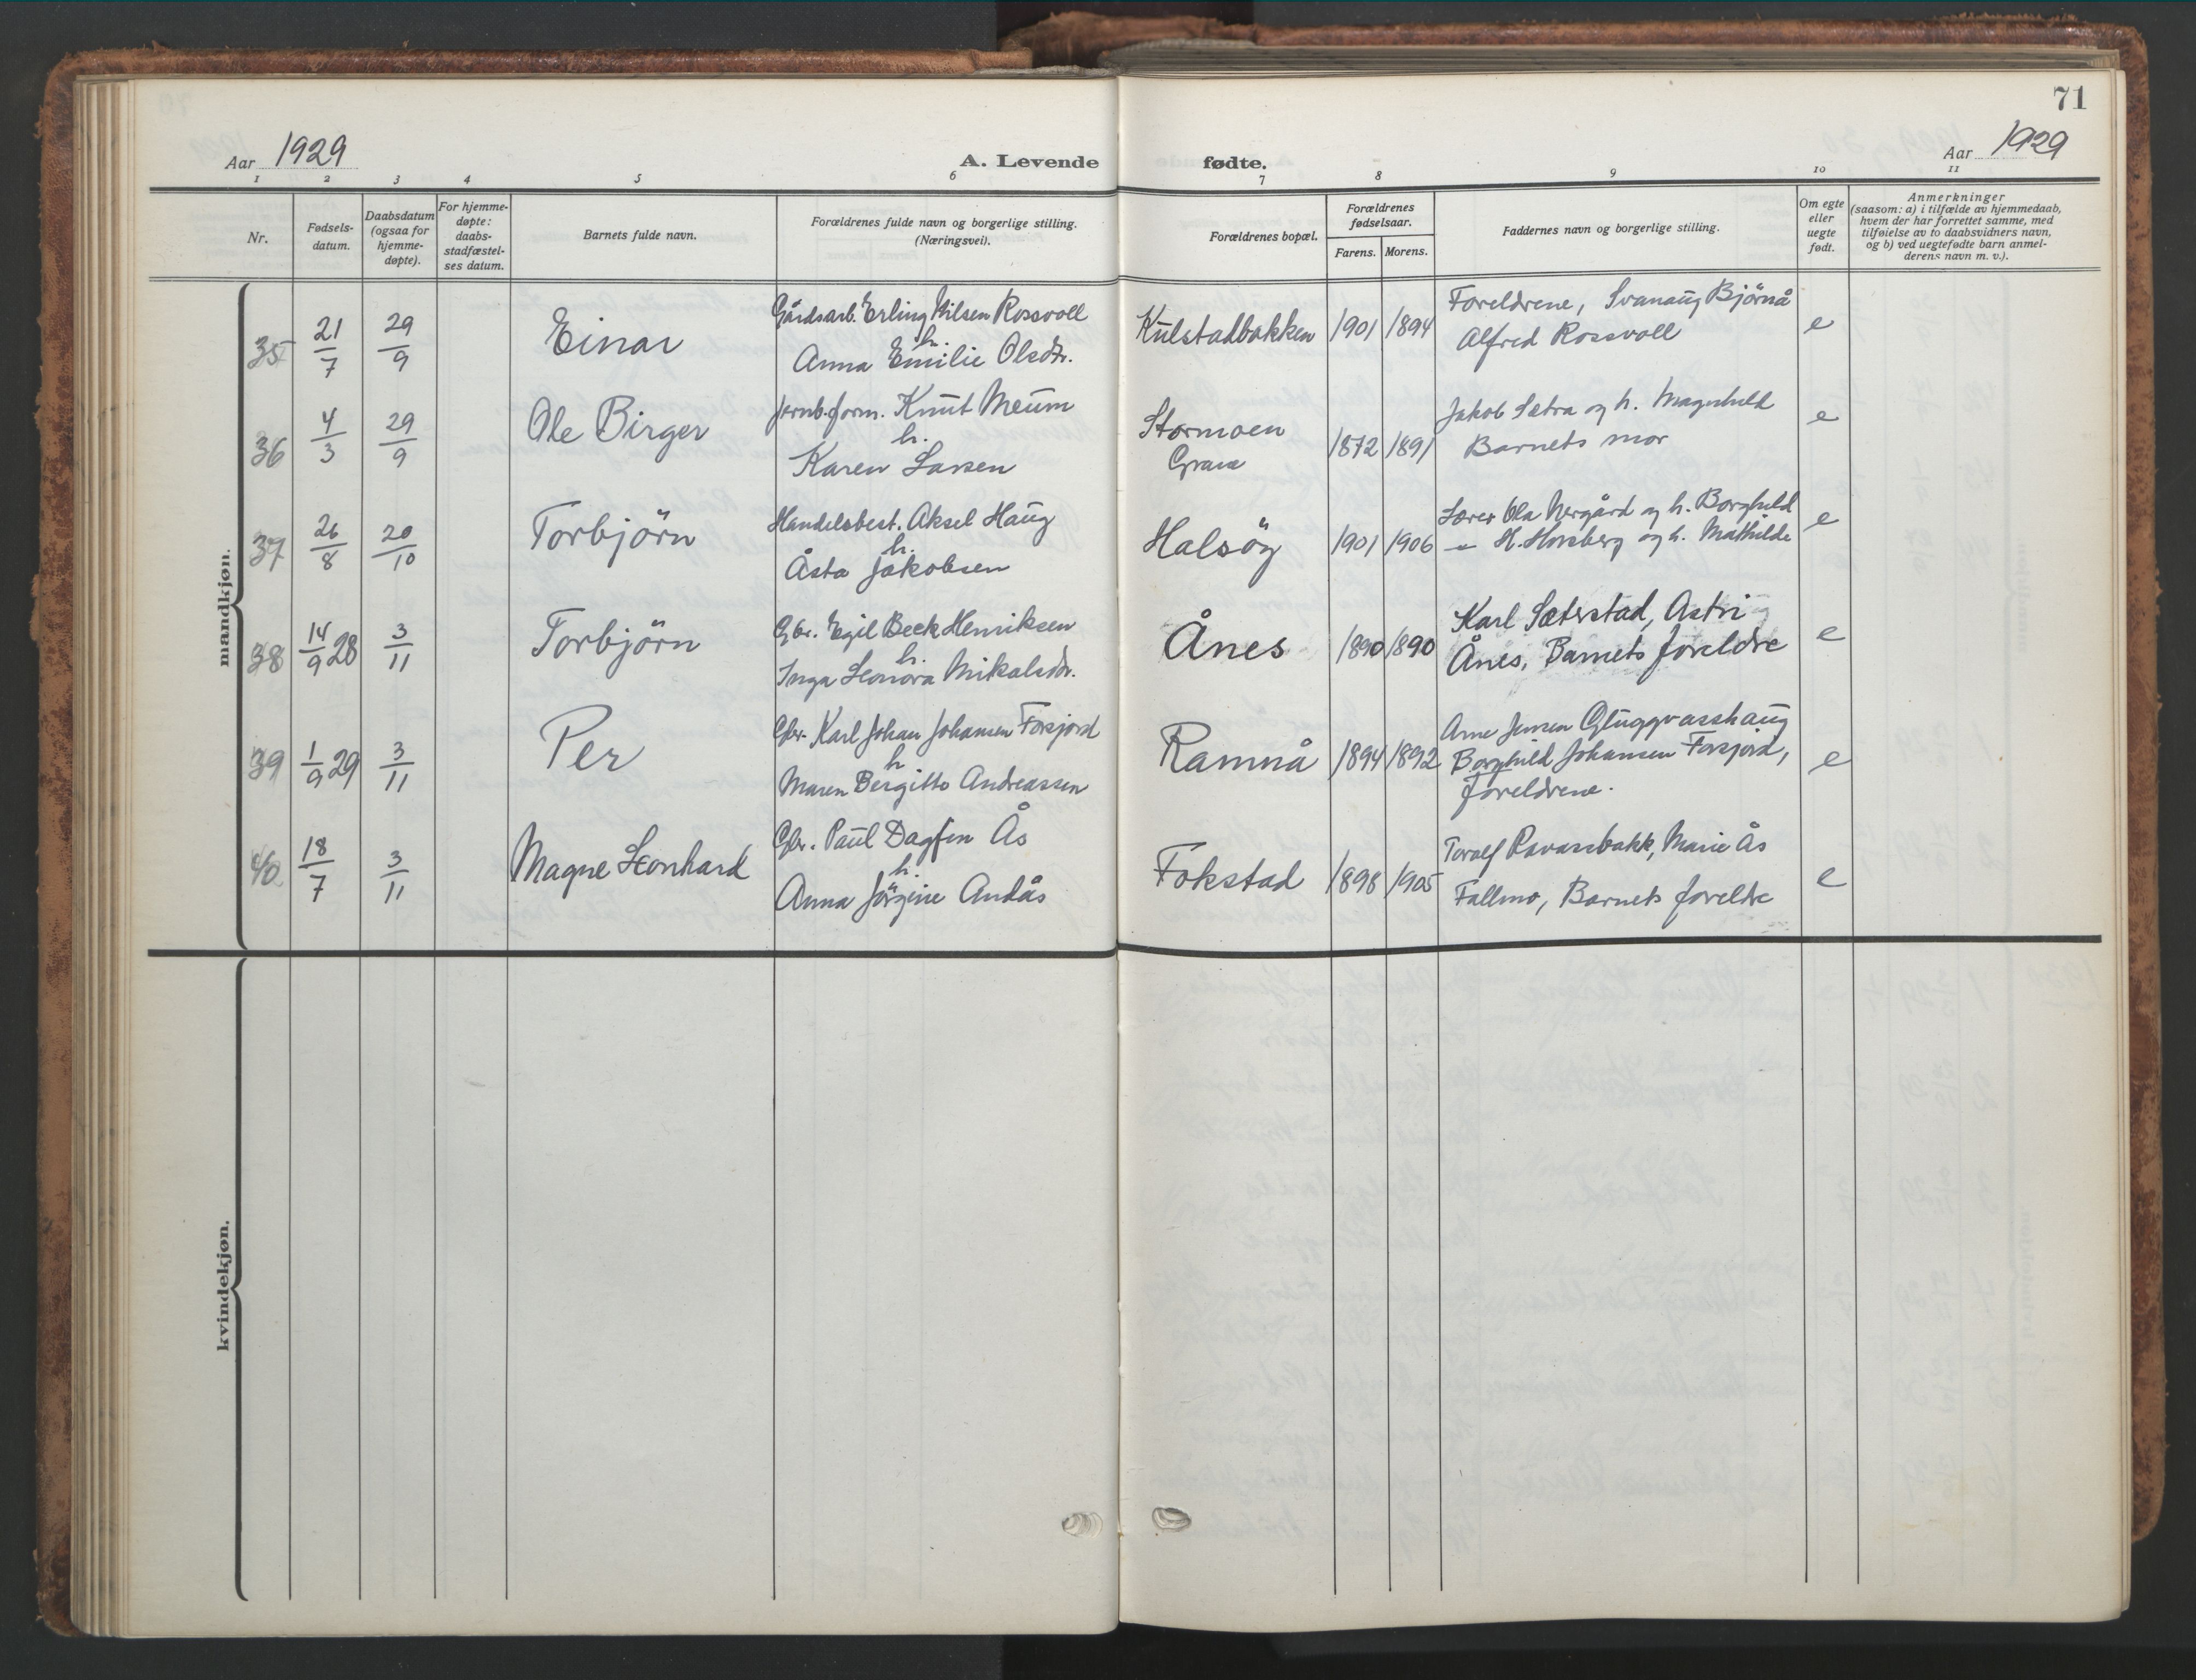 71
Aar 1929
A. Levende fødte.
Aar 1929
1 2 3 4 5 6 7 8 9 10 11
Nr.
Fødsels-
datum.
Daabsdatum
(ogsaa for
hjemme-
døpte).
For hjemme-
døpte:
daabs-
stadfæstel-
ses datum.
Barnets fulde navn.
Forældrenes fulde navn og borgerlige stilling.
(Næringsvei).
Forældrenes bopæl.
Forældrenes
fødselsaar.
Farens. Morens.
Faddernes navn og borgerlige stilling.
Om egte
eller
uegte
født.
Anmerkninger
(saasom: a) i tilfælde av hjemmedaab,
hvem der har forrettet samme, med
tilføielse av to daabsvidners navn,
og b) ved uegtefødte barn anmel-
derens navn m. v.).
mandkjøn.
35 21/7 29/9 Einar
Gårdsarb. Erling Nilsen Rossvoll
h.
Anna Emilie Olsdtr.
Kulstadbakken 1901 1894
Foreldrene, Svanaug Bjørnå
Alfred Rossvoll
e
36 4/3 29/9 Ole Birger
Jernb.form. Knut Meum
h.
Karen Larsen
Stormoen
Grane
1872 1891
Jakob Sætra og h. Magnhild
Barnets mor
e
37 26/8 20/10 Torbjörn
Handelsbest. Aksel Haug
h.
Åsta Jakobsen
Halsöy 1901 1906
Lærer Ola Nergård og h. Borghild
— H. Horsberg og h. Mathilde
e
38 14/9 28 3/11 Torbjörn
Gbr. Egil Beck Henriksen
h.
Inga Leonora Mikalsdtr.
Ånes 1890 1890
Karl Sæterstad, Astri
Ånes, Barnets foreldre
e
39 1/9 29 3/11 Per
Gbr. Karl Johan Johansen Forsjord
h
Maren Bergitte Andreassen
Ramnå 1894 1892
Arne Jensen Gluggvasshaug
Borghild Johansen Forsjord,
Foreldrene.
e
40 18/7 3/11 Magne Leonhard
Gbr. Paul Dagfin Ås
h.
Anna Jörgine Andås
Fokstad 1898 1905
Toralf Ravassbakk, Marie Ås
Fallmo, Barnets foreldre
e
kvindekjøn.